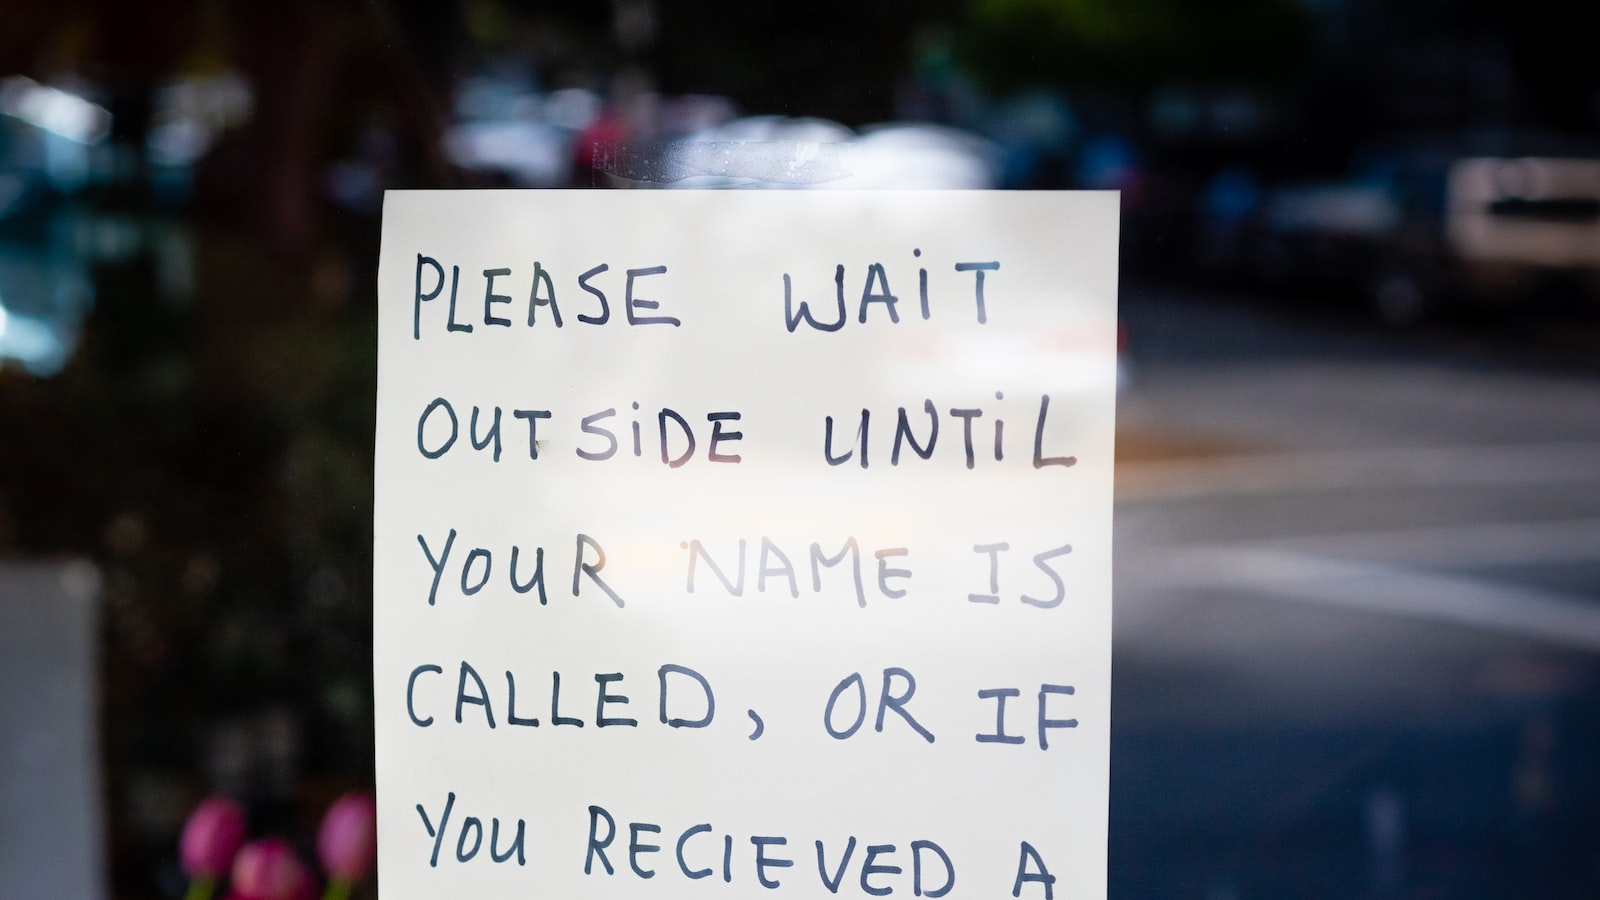 PLEASE WAIT
OUTSIDE UNTIL
YOUR NAME IS
CALLED, OR IF
YOU RECIEVED A